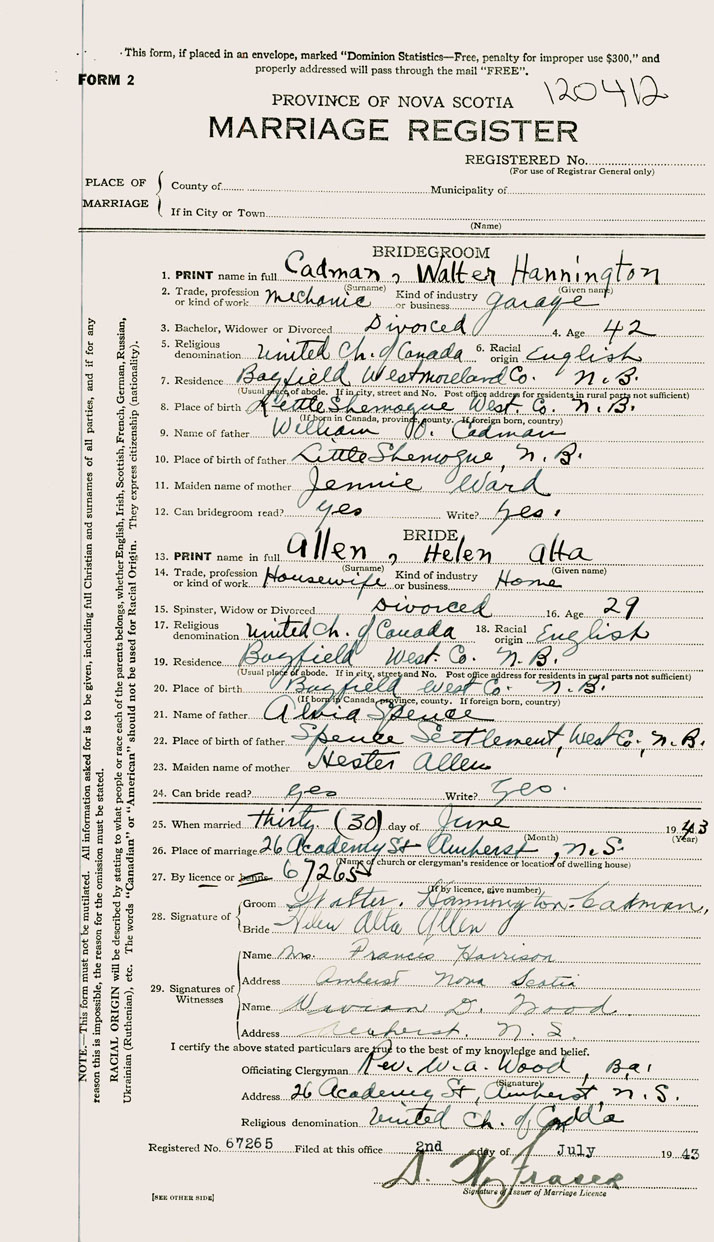 This form, if placed in an envelope, marked “Dominion Statistics—Free, penalty for improper use $300,” and
properly addressed will pass through the mail “FREE”.
FORM 2
120412
PROVINCE OF NOVA SCOTIA
MARRIAGE REGISTER
REGISTERED No.
(For use of Registrar General only)
PLACE OF MARRIAGE
County of
Municipality of
If in City or Town
(Name)
BRIDEGROOM
1. PRINT name in full Cadman, Walter Hannington
(Surname) (Given name)
2. Trade, profession or kind of work mechanic Kind of industry or business garage
3. Bachelor, Widower or Divorced Divorced 4. Age 42
5. Religious denomination United Ch. of Canada 6. Racial origin English
7. Residence Bayfield Westmoreland Co. N.B.
(Usual place of abode. If in city, street and No. Post office address for residents in rural parts not sufficient)
8. Place of birth Little Shemogue West. Co. N.B.
(If born in Canada, province, county. If foreign born, country)
9. Name of father William Cadman
10. Place of birth of father Little Shemogue, N.B.
11. Maiden name of mother Jennie Ward
12. Can bridegroom read? yes Write? yes.
BRIDE
13. PRINT name in full Allen, Helen Alta
(Surname) (Given name)
14. Trade, profession or kind of work Housewife Kind of industry or business Home
15. Spinster, Widow or Divorced Divorced 16. Age 29
17. Religious denomination United Ch. of Canada 18. Racial origin English
19. Residence Bayfield West. Co. N.B.
(Usual place of abode. If in city, street and No. Post office address for residents in rural parts not sufficient)
20. Place of birth Bayfield West Co. N.B.
(If born in Canada, province, county. If foreign born, country)
21. Name of father Spence
22. Place of birth of father Spence Settlement, West Co., N.B.
23. Maiden name of mother Hester Allen
24. Can bride read? yes Write? yes.
25. When married thirty (30) day of June 1943
(Month) (Year)
26. Place of marriage 26 Academy St Amherst, N.S.
(Name of church or clergyman's residence or location of dwelling house)
27. By licence or banns 67265
(If by licence, give number)
28. Signature of
Groom Walter Hannington Cadman,
Bride Helen Alta Allen
29. Signatures of Witnesses
Name Mrs. Frances Harrison
Address Amherst Nova Scotia
Name D. Wood
Address Amherst, N.S.
I certify the above stated particulars are true to the best of my knowledge and belief.
Officiating Clergyman Rev. W. A. Wood, B.A.
(Signature)
Address 26 Academy St, Amherst, N.S.
Religious denomination United Ch. of Can'da
Registered No. 67265 Filed at this office 2nd day of July 1943
Fraser
Signature of Issuer of Marriage Licence
[SEE OTHER SIDE]
NOTE.—This form must not be mutilated. All information asked for is to be given, including full Christian and surnames of all parties, and if for any
reason this is impossible, the reason for the omission must be stated.
RACIAL ORIGIN will be described by stating to what people or race each of the parents belongs, whether English, Irish, Scottish, French, German, Russian,
Ukrainian (Ruthenian), etc. The words “Canadian” or “American” should not be used for Racial Origin. They express citizenship (nationality).